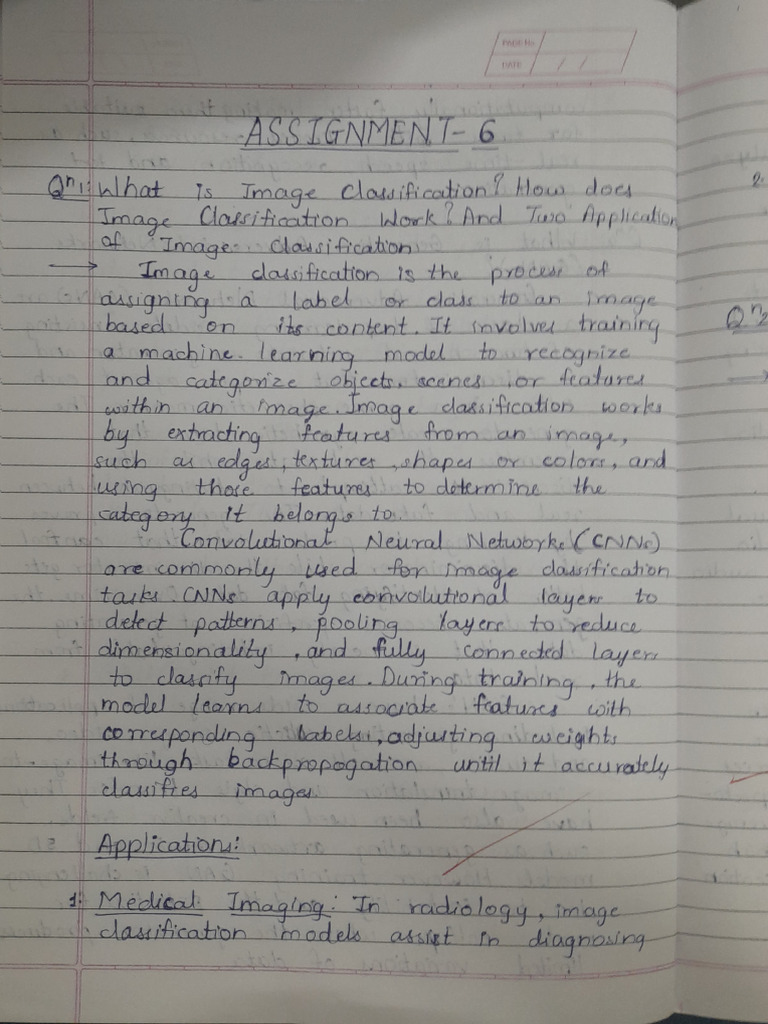 PAGE No.
DATE / /
ASSIGNMENT- 6
Qn1: What is Image Classification? How does
Image Classification Work? And Two Application
of Image Classification
→ Image classification is the process of
assigning a label or class to an image
based on its content. It involves training
a machine learning model to recognize
and categorize objects, scenes or features
within an image. Image classification works
by extracting features from an image,
such as edges, textures, shapes or colors, and
using those features to determine the
category it belongs to.
Convolutional Neural Networks (CNNs)
are commonly used for image classification
tasks. CNNs apply convolutional layers to
detect patterns, pooling layers to reduce
dimensionality, and fully connected layers
to classify images. During training, the
model learns to associate features with
corresponding labels, adjusting weights
through backpropogation until it accurately
classifies images
Applications:
1. Medical Imaging: In radiology, image
classification models assist in diagnosing
2.
Qn2